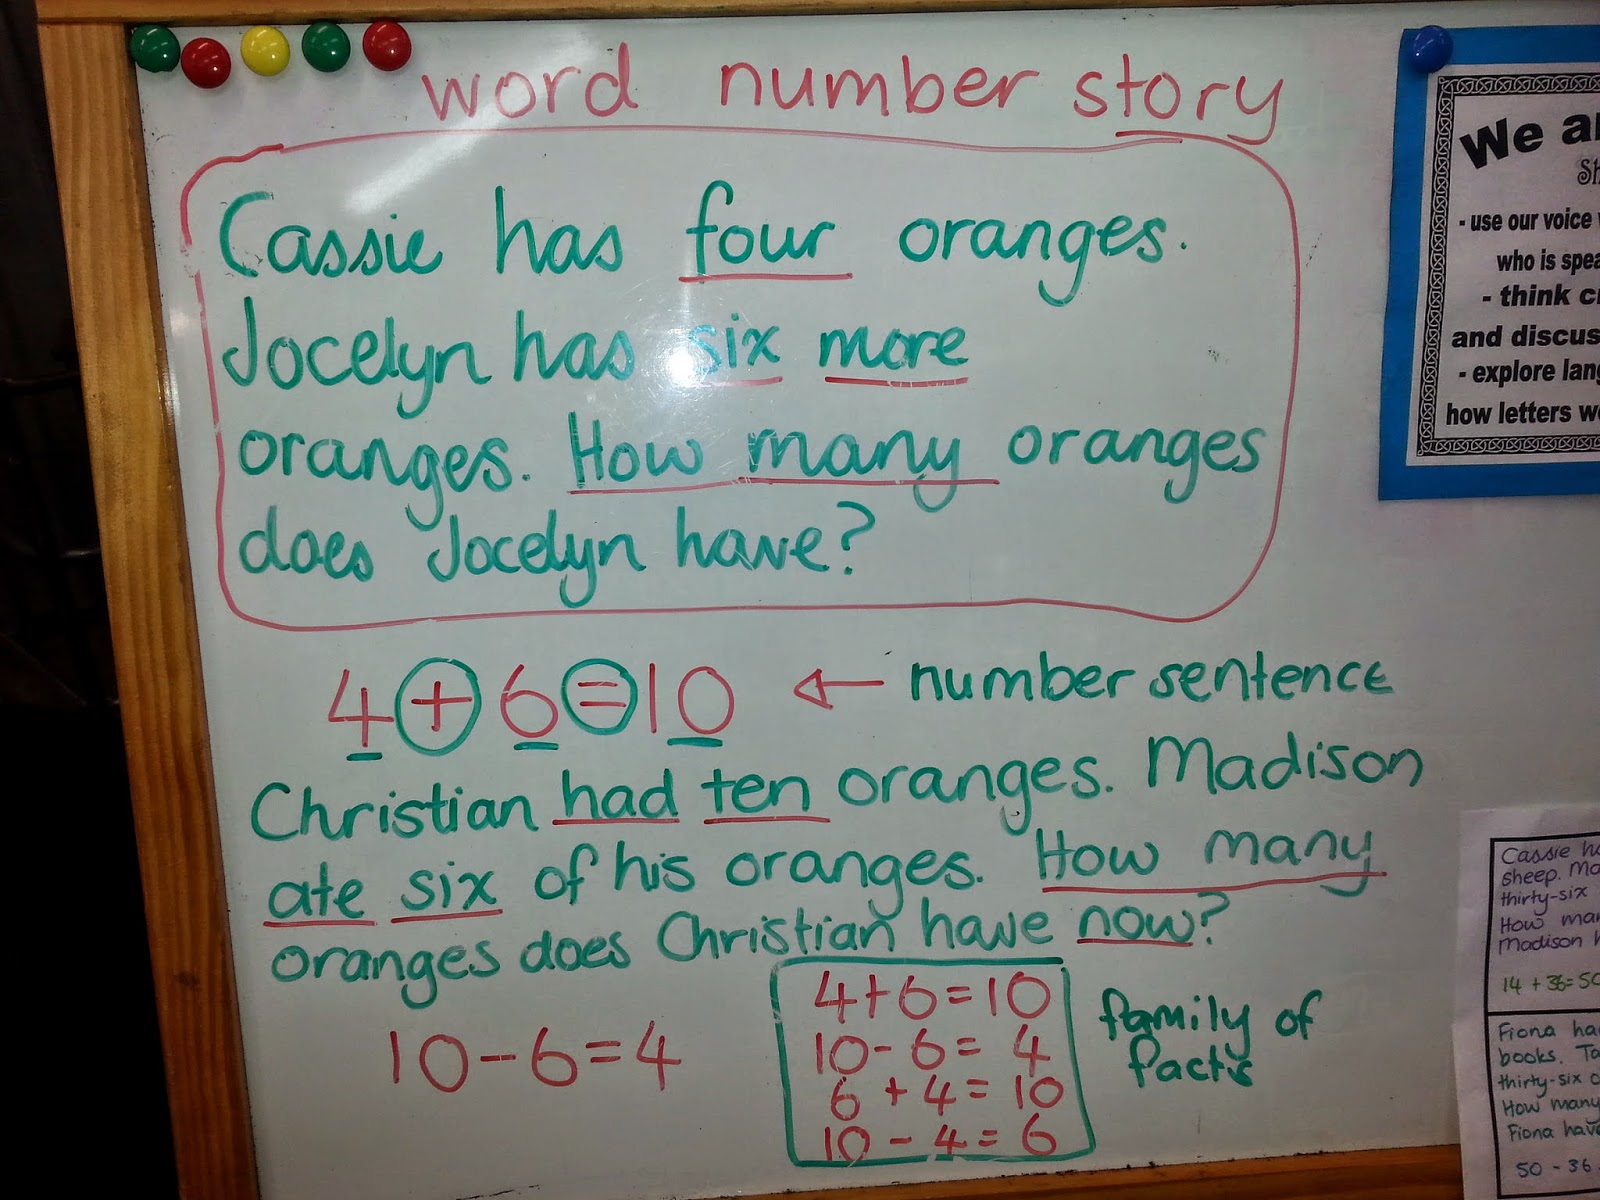 word number story
Cassie has four oranges.
Jocelyn has six more
oranges. How many oranges
does Jocelyn have?
4 + 6 = 10 ← number sentence
Christian had ten oranges. Madison
ate six of his oranges. How many
oranges does Christian have now?
10 - 6 = 4
4 + 6 = 10
10 - 6 = 4
6 + 4 = 10
10 - 4 = 6
family of
facts
We
- use our voice
who is
- think
and
- explore
how letters
Cassie
sheep.
thirty-six
How
Madison
14 + 36 = 50
Fiona
books.
thirty-six
How many
Fiona
50 - 36